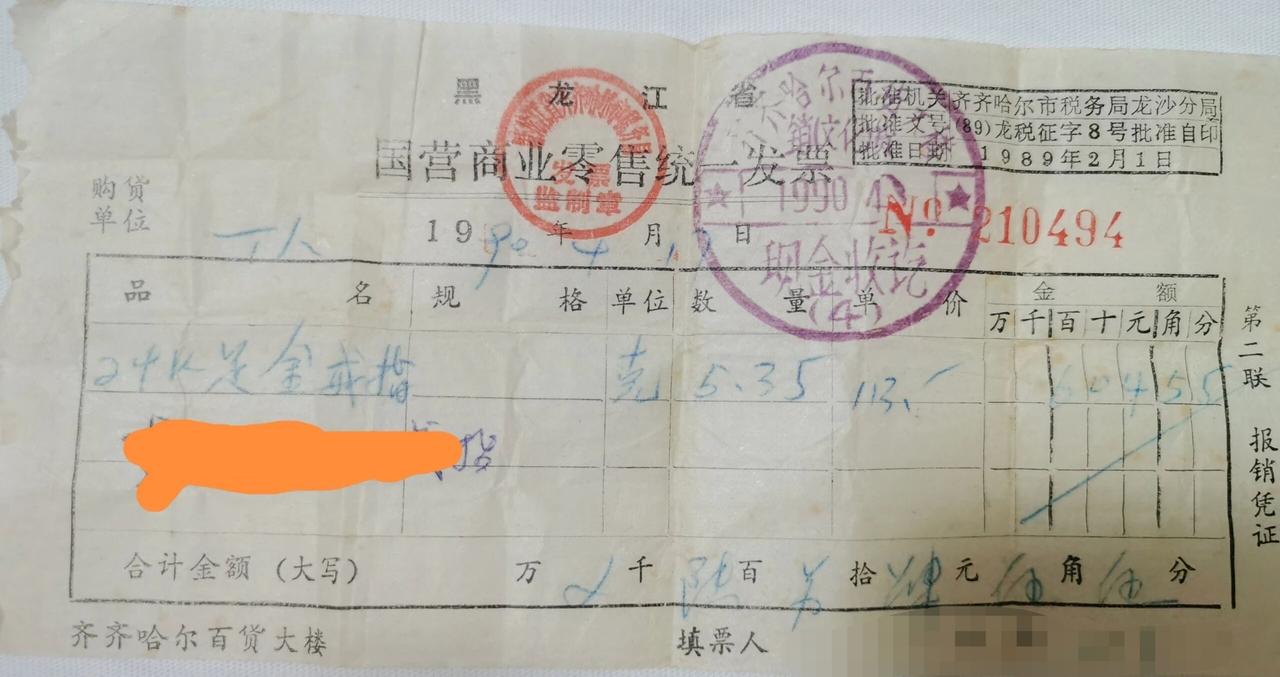 黑龙江省
国营商业零售统一发票
批准机关 齐齐哈尔市税务局龙沙分局
批准文号 (89)龙税征字8号批准自印
批准日期 1989年2月1日
发票
监制章
1990.4
现金收讫
(4)
购货单位 个人
1990年4月日
№ 210494
品名 规格 单位 数量 单价 金额
万千百十元角分
24K足金戒指 克 5.35 113. 60455
合计金额(大写) 万 千 陆百 拾 肆元 伍角 伍分
齐齐哈尔百货大楼 填票人
第二联 报销凭证